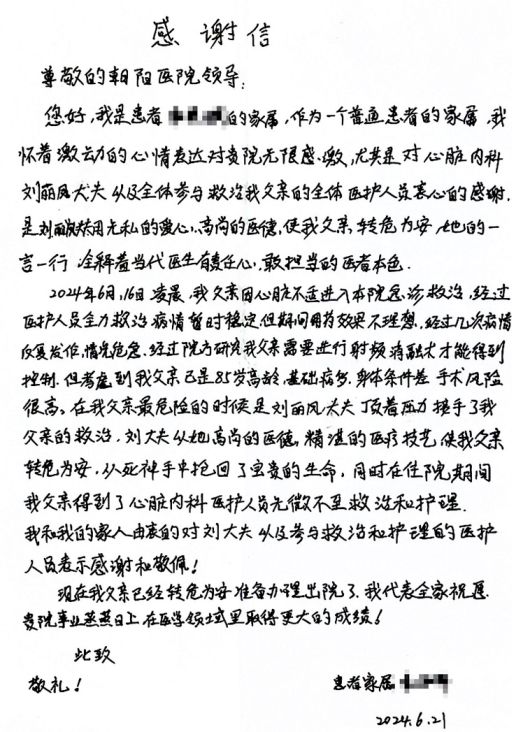 感谢信
尊敬的朝阳医院领导:
您好,我是患者的家属,作为一个普通患者的家属,我
怀着激动的心情表达对贵院无限感激,尤其是对心脏内科
刘丽凤大夫以及全体参与救治我父亲的全体医护人员衷心的感谢.
是刘丽凤大夫用无私的爱心,高尚的医德,使我父亲,转危为安,她的一
言一行诠释着当代医生有责任心,敢担当的医者本色.
2024年6月,16日凌晨,我父亲因心脏不适进入本院急诊救治,经过
医护人员全力救治病情暂时稳定,但期间用药效果不理想,经过几次病情
反复发作,情况危急.经过院方研究我父亲需要进行射频消融术才能得到
控制.但考虑到我父亲已是85岁高龄,基础病多,身体条件差手术风险
很高。在我父亲最危险的时候是刘丽凤大夫顶着压力接手了我
父亲的救治.刘大夫以她高尚的医德,精湛的医疗技艺,使我父亲
转危为安.从死神手中抢回了宝贵的生命,同时在住院期间
我父亲得到了心脏内科医护人员无微不至救治和护理.
我和我的家人由衷的对刘大夫以及参与救治和护理的医护
人员表示感谢和敬佩!
现在我父亲已经转危为安准备办理出院了.我代表全家祝愿
贵院事业蒸蒸日上在医学领域里取得更大的成绩!
此致
敬礼!
患者家属
2024.6.21